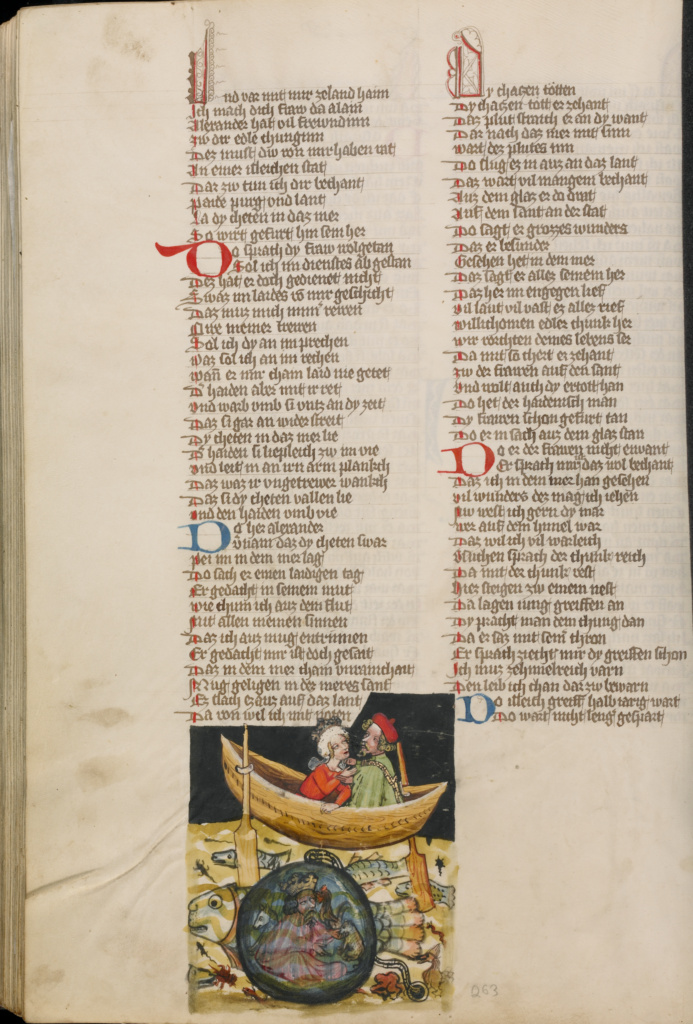 Und var mit mir zeland haim
Ich mach dich fraw da alain
Alexander hat vil frewndinn
zw dir edle chunginn
Dez must dw von mir haben rat
An einer isleichen stat
Daz zw tun ich dir bechant
paide purg und lant
La dy cheten in daz mer
So wirt gefurt hin sein her
Do sprach dy fraw wolgetan
Sol ich im dienstes ab gestan
Dez hat er doch gedienet nicht
Swaz im laides vo mir geschicht
Daz muz mich imm rewen
Awe meiner trewen
Sol ich dy an im prechen
waz sol ich an im rechen
wan er mir cham laid nie getet
D haiden aber mit ir ret
vnd warb vmb si vntz an dy zeit
Daz si gar an wider streit
Dy cheten in daz mer lie
D haiden si liepleich zw im vie
vnd leit in an irn arm planksch
Daz waz ir vngetrewer wanksch
Daz si dy cheten vallen lie
und den haiden vmb vie
Do her alexander
Vernam daz dy cheten swar
pei im in dem mer lag
Do sach er einen laidigen tag
Er gedacht in seinem mut
wie chum ich auz dem flut
Mit allen meinen sinnen
Daz ich auz mug entrinnen
Er gedacht mir ist doch gesait
Daz in dem mer cham vnrainchait
Mug geligen in der meres sant
Ez slach ez auz auf daz lant
Da von wil ich mit noten
Dy chatzen totten
Dy chatzen tott er zehant
Daz plut straich er an dy want
Dar nach daz mer mit sinn
wart dez plutes inn
Do slug ez in auz an daz lant
Daz wart vil mangem bechant
Auz dem glaz er do drat
Auf dem sant an der stat
Do sagt er grozzes wunders
Daz er besunder
Gesehen het in dem mer
Daz sagt er aller seinem her
Daz her im engegen lief
vil laut vil vast ez allez rief
willichomen edler chunk her
wir vorchten deines lebens ser
Da mit so chert er zehant
zw der frawen auf den sant
vnd wolt auch dy ertott han
Do het der haidenisch man
Dy frawen schon gefurt tan
Do er in sach auz dem glaz stan
Do er der frawen nicht envant
Er sprach mir daz wol bechant
Daz ich in dem mer han gesehen
vil wunders der mag ich iehen
Nw west ich gern dy mar
wer auf dem himel war
Daz wil ich vil warleich
Vsuchen sprach der chunk reich
Da mit der chunk vest
hiez steigen zw einem nest
Da lagen iung greiffen an
Dy pracht man dem chung dan
Da er saz mit seim thron
Er sprach ziecht mir dy greiffen schon
Ich muz zehimelreich varn
Den leib ich chan dar zw bewarn
Do isleich greiff halb iarig wart
Do wart nicht leng gespart
263